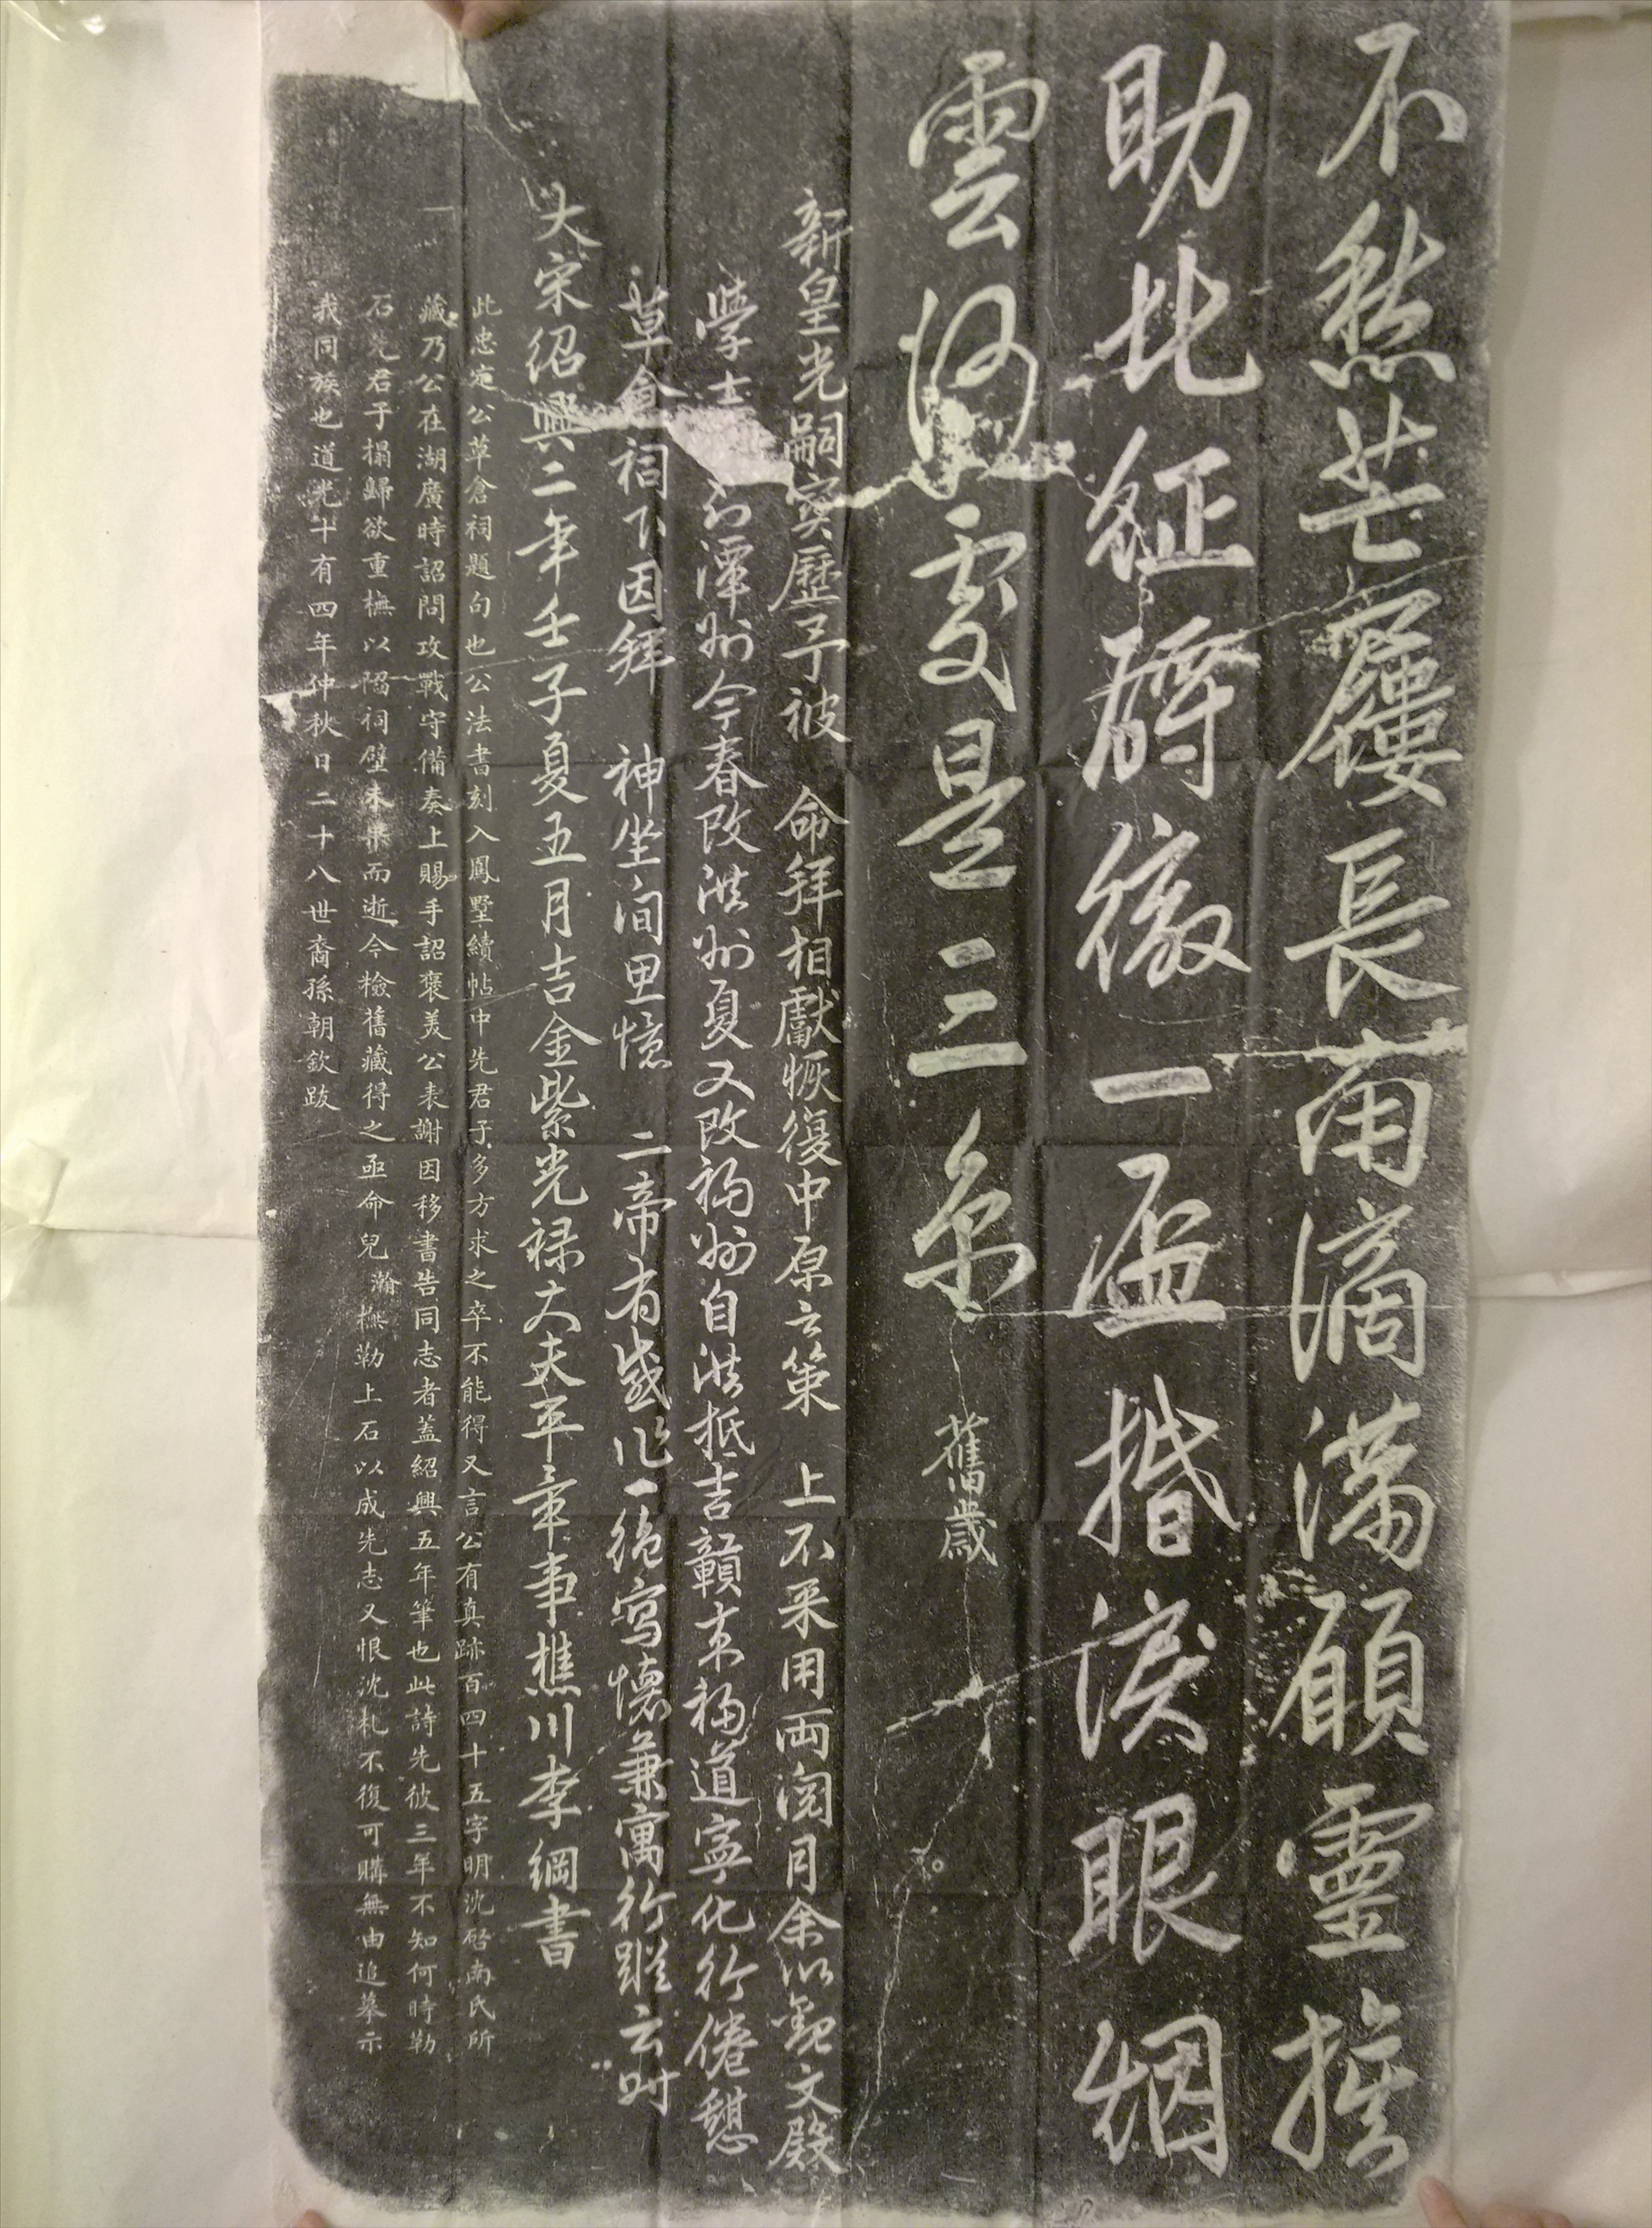 不愁芒屨長南滴滿願靈旗
助北征酹徹一盃揩淚眼烟
雲何處是三京 舊歲
新皇光嗣寳歷予被 命拜相獻恢復中原之策 上不采用兩閱月余以觀文殿
學士 潭州今春改洪州夏又改福州自洪抵吉贛來福道寧化行倦憩
草倉祠下因拜 神坐間里憶 二帝有感作一絶寫懷兼寓行蹤云時
大宋紹興二年壬子夏五月吉金紫光禄大夫平章事樵川李綱書
此忠定公草倉祠題句也公法書刻入鳳墅續帖中先君子多方求之卒不能得又言公有真跡百四十五字明沈啓南氏所
藏乃公在湖廣時詔問攻戰守備奏上賜手詔褒美公表謝因移書告同志者蓋紹興五年筆也此詩先彼三年不知何時勒
石先君子搨歸欲重橅以陷祠壁未果而逝今檢舊藏得之亟命兒瀚橅勒上石以成先志又恨沈札不復可購無由追摹示
我同族也道光十有四年仲秋日二十八世裔孫朝欽跋